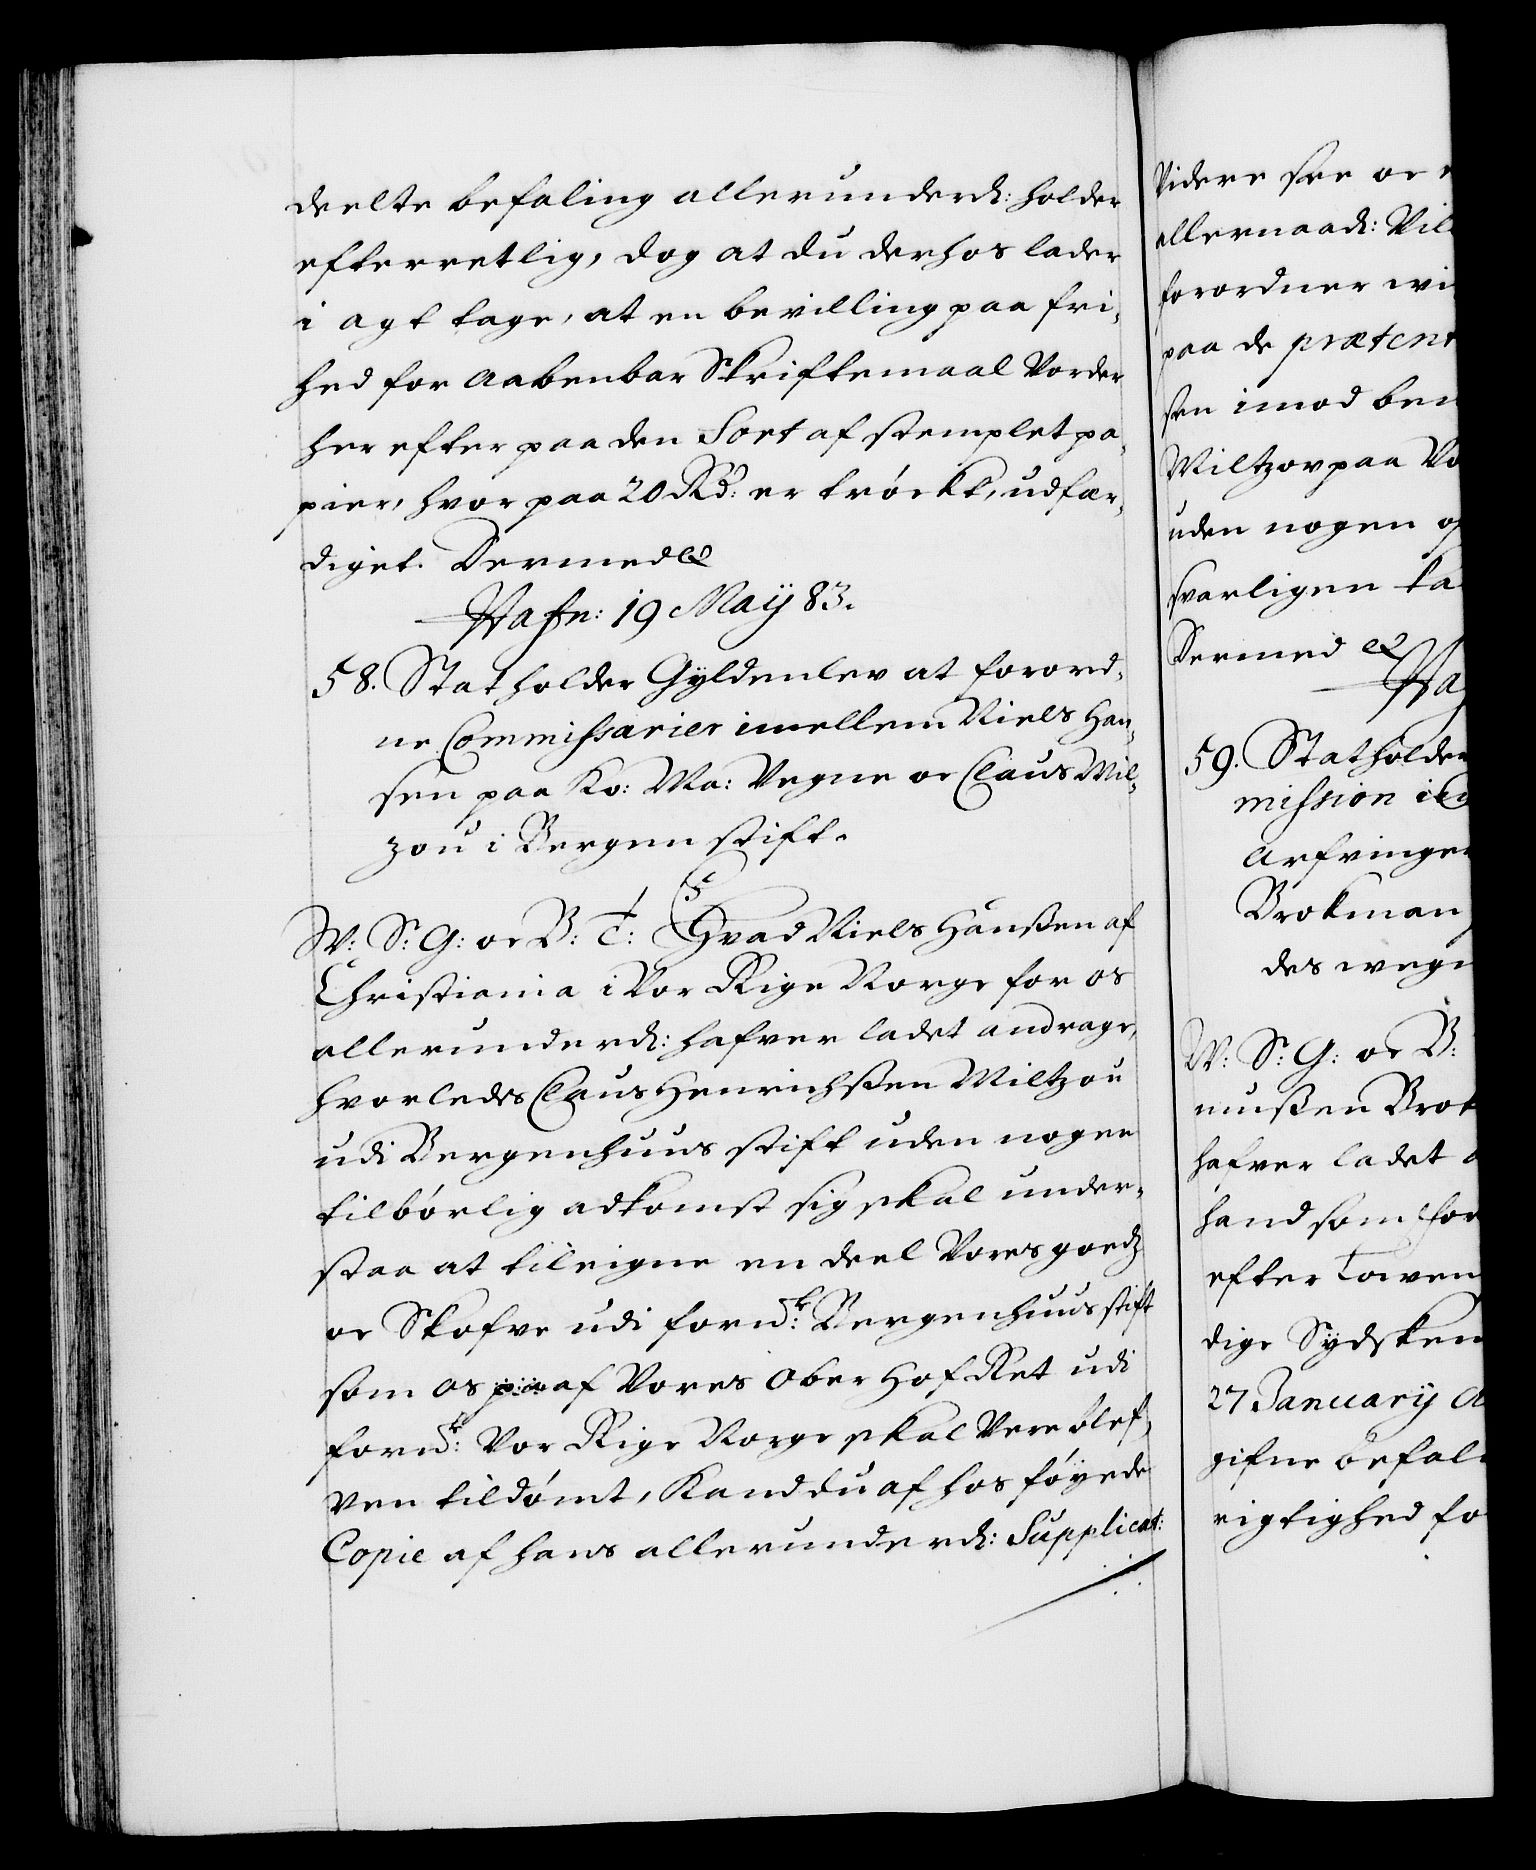 deelte befaling allerunderd: holder
efterretlig, dog at du derhos lader
i agt tage, at en bevilling paa fri,
hed for aabenbar Skriftemaal Vorder
her efter paa den Sort af stemplet pa,
pier, hvor paa 20 Rd: er tröckt, udfær,
diget. Dermed &
Hafn: 19 Maij 83.
58. Statholder Gyldenlev at forord,
ne Commissarier imellem Niels Han,
sen paa Ko: Ma: Vegne oc Claus Mil,
zou i Bergen stift.
W: S: G: oc B: T: Hvad Niels Hanßen af
Christiania i Vor Rige Norge for os
allerunderd: hafver ladet andrage,
hvorledes Claus Henrichßen Miltzou
udi Bergenhuus stift uden nogen
tilbörlig adkomst sig skal under,
staa at tileigne en deel Vores goedz
oc Skofve udi fornd: Bergenhuus stift
som os af Vores Ober Hof Ret udi
fornd: Vor Rige Norge skal Vere blef,
ven tildömt, Kand du af hos föyede
Copie af hans allerunderd: Supplicat:
Videre see oc
allernaad: Vil
forordner wi
paa de prætent
sen imod ben
Miltzov paa Vo
uden nogen op
svarligen ta
Dermed &
Haf
59. Statholder
mission
Arfvinger
Brokman
des wegn
W: S: G: oc B:
mußen Brok
hafver ladet a
hand som for
efter Loven
dige Sydsken
27 January A
gifne befal
rigtighed fo